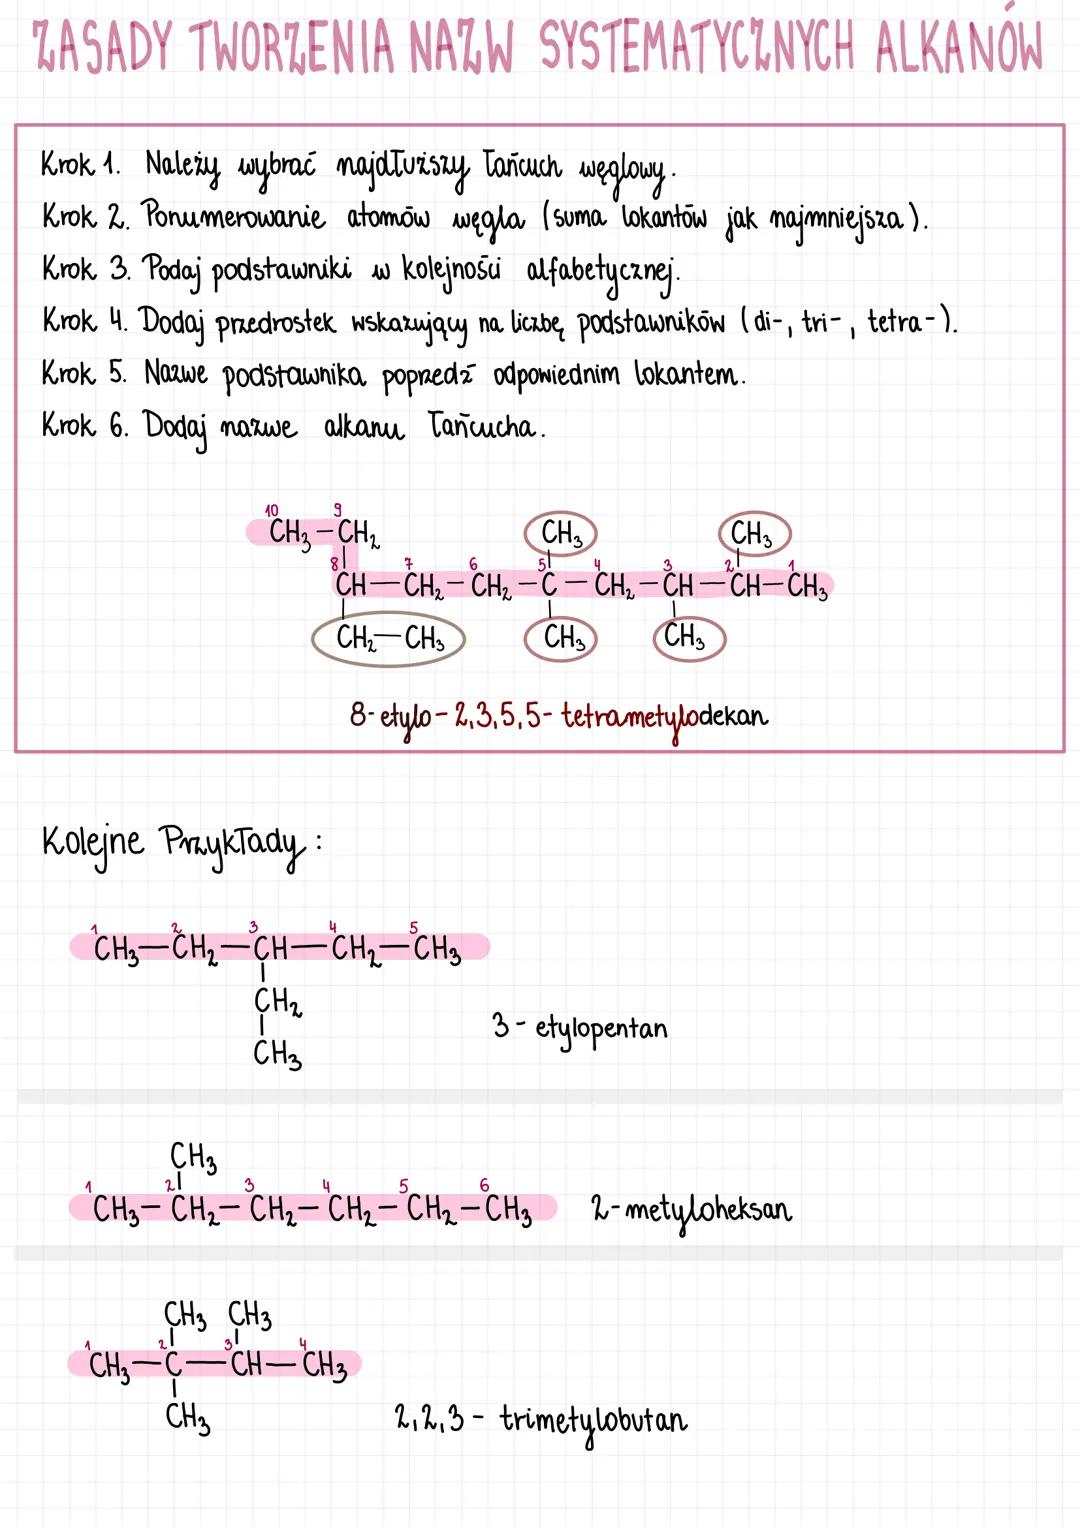 ZASADY TWORZENIA NAZW SYSTEMATYCZNYCH ALKANÓW
Krok 1. Należy wybrać najdłuższy łańcuch węglowy.
Krok 2. Ponumerowanie atomów węgla (suma lokantów jak najmniejsza).
Krok 3. Podaj podstawniki w kolejności alfabetycznej.
Krok 4. Dodaj przedrostek wskazujący na liczbę podstawników (di-, tri-, tetra-).
Krok 5. Nazwe podstawnika poprzedź odpowiednim lokantem.
Krok 6. Dodaj nazwe alkanu łańcucha.
10 9
CH₃—CH₂ CH₃ CH₃
8 7 6 5 4 3 2 1
CH—CH₂—CH₂—C—CH₂—CH—CH—CH₃
CH₂—CH₃ CH₃ CH₃
8-etylo-2,3,5,5-tetrametylodekan
Kolejne Przykłady:
1 2 3 4 5
CH₃—CH₂—CH—CH₂—CH₃
CH₂
CH₃
3-etylopentan
CH₃
1 2 3 4 5 6
CH₃—CH₂—CH₂—CH₂—CH₂—CH₃ 2-metyloheksan
CH₃ CH₃
1 2 3 4
CH₃—C—CH—CH₃
CH₃
2,2,3-trimetylobutan